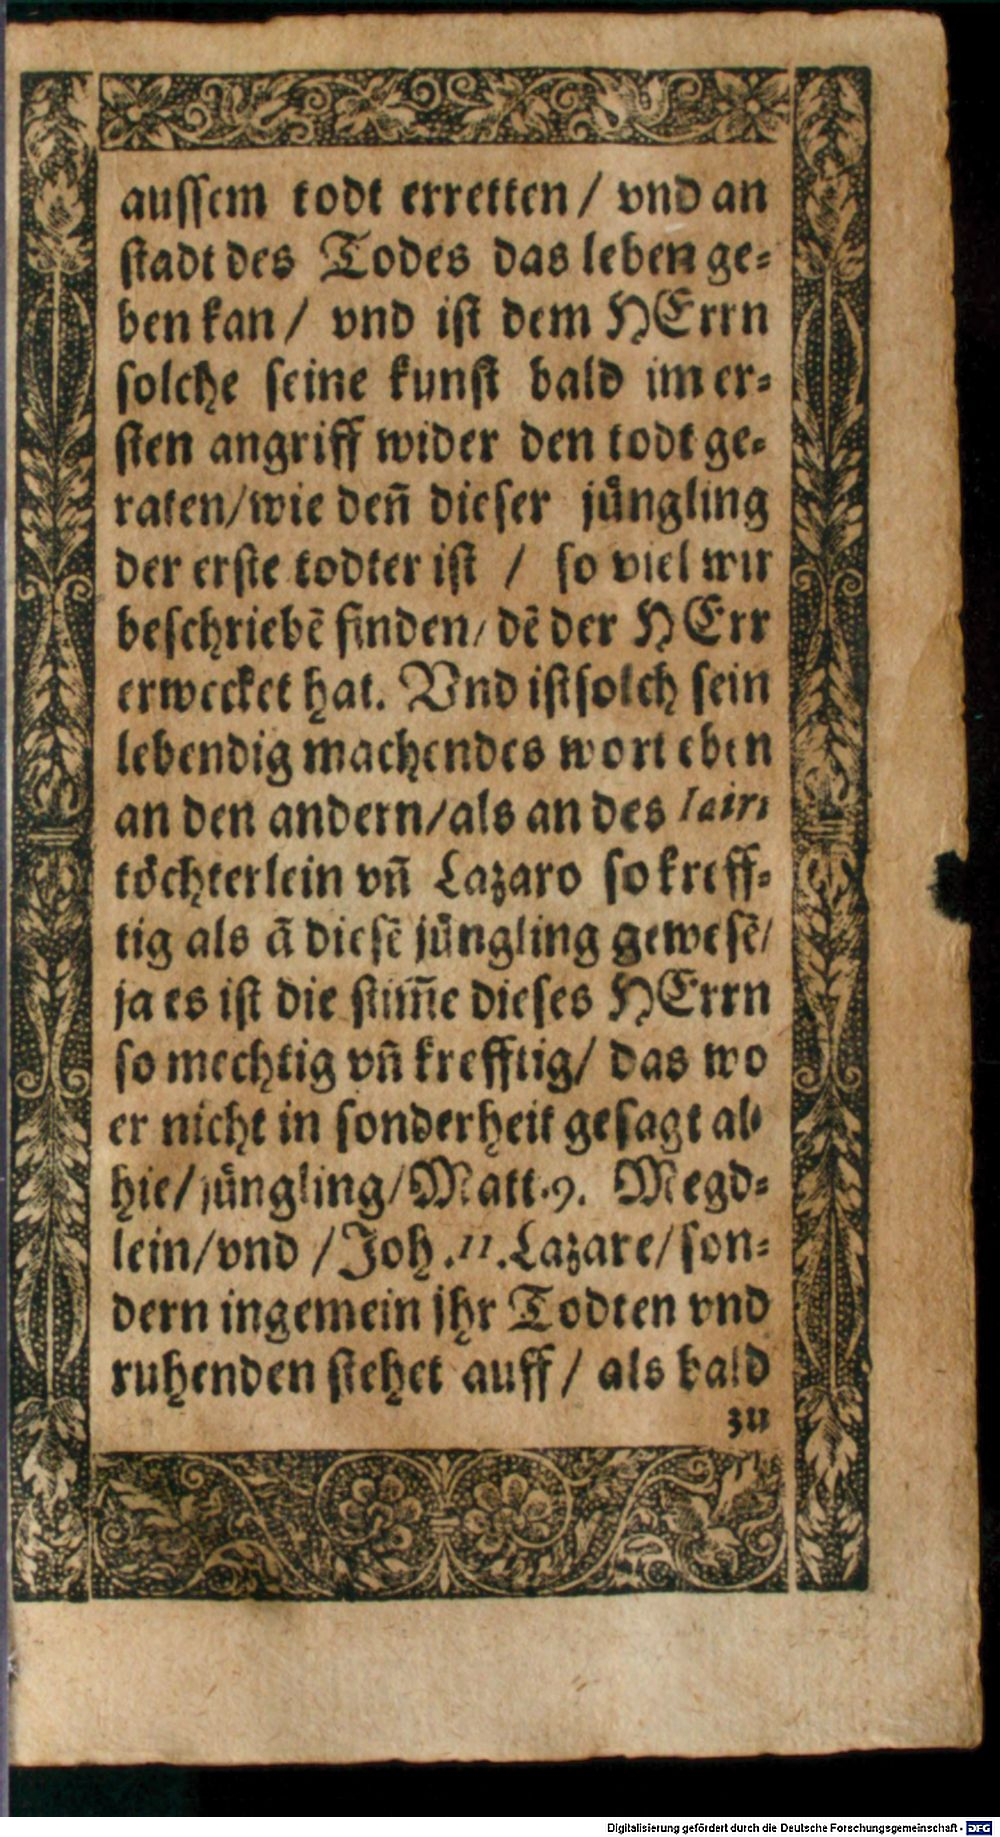 aussem todt erretten / vnd an
stadt des Todes das leben ge-
ben kan / vnd ist dem HErrn
solche seine kunst bald im er-
sten angriff wider den todt ge-
raten/wie deñ dieser jüngling
der erste todter ist / so viel wir
beschriebē finden/ dē der HErr
erwecket hat. Vnd ist solch sein
lebendig machendes wort eben
an den andern/als an des Iairi
töchterlein vñ Lazaro so kreff-
tig als ā diesē jüngling gewesē/
ja es ist die stim̃e dieses HErrn
so mechtig vñ krefftig/ das wo
er nicht in sonderheit gesagt al-
hie/jüngling/Matt.9. Megd-
lein/vnd /Joh.11.Lazare/son-
dern ingemein jhr Todten vnd
ruhenden stehet auff / als bald
zu
Digitalisierung gefördert durch die Deutsche Forschungsgemeinschaft - DFG